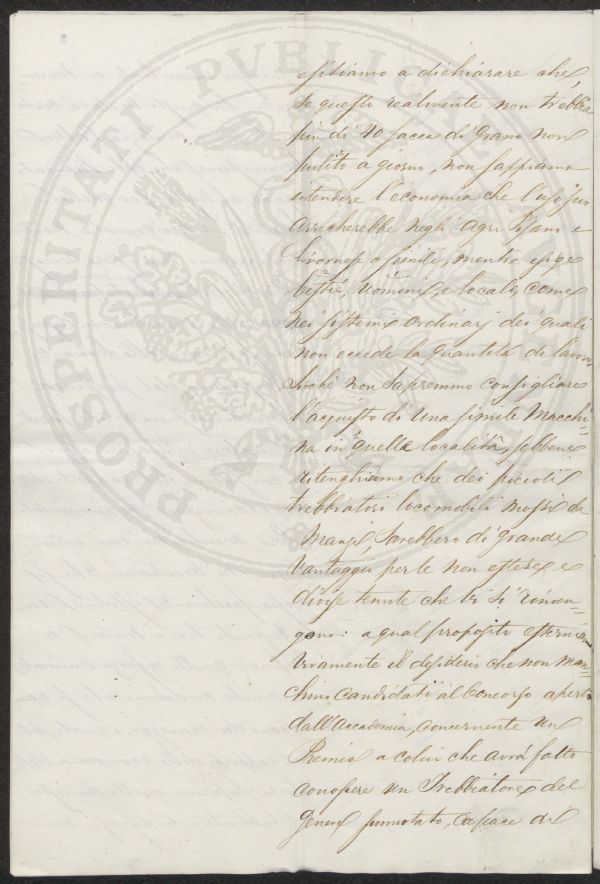 esitiamo a dichiarare che,
se questo realmente non trebbia
più di 40 sacca di Grano non
pulito a giorno, non sappiamo
intendere l'economia che l'uso suo
arrecherebbe negli Agri Pisano e
Livornese o simili, mentre esige
bestie, uomini, e locale, come
nei sistemi ordinarj dei quali
non eccede la quantità di lavoro.
Sicchè non sapremmo consigliare
l'acquisto di una simile Macchi=
na in quelle località, sebbene
ritenghiamo che dei piccoli
trebbiatori locomobili mossi da
Manzi, sarebbero di grande
vantaggio per le non estese e
divise tenute che vi si rinven=
gono: a qual proposito esterniamo
vivamente il desiderio che non man=
chino candidati al Concorso aperto
dall'Accademia, concernente un
Premio a colui che avrà fatto
conoscere un Trebbiatore del
genere sunnotato, capace di
PROSPERITATI PUBLICAE